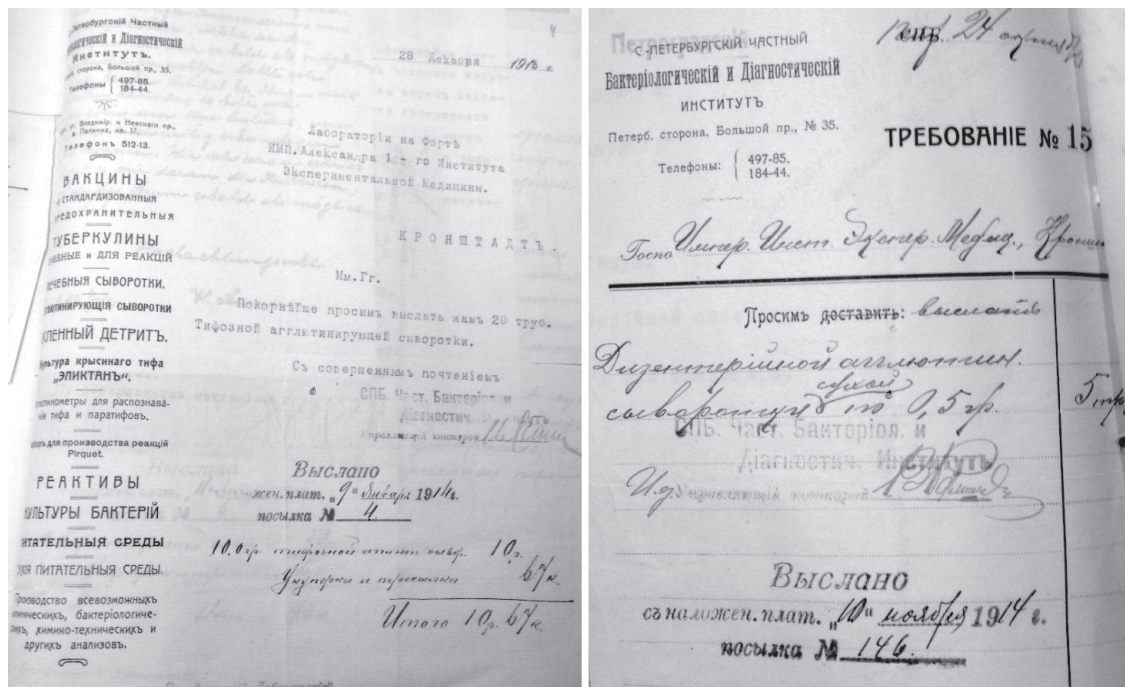 Петербургскій Частный
и Діагностическій
Институтъ.
сторона, Большой пр., 35.
Телефоны { 497-85.
184-44.
Владимір. и Невскаго пр.,
Телефонъ 512-13.
ВАКЦИНЫ
СТАНДАРТИЗОВАННЫЯ
ПРЕДОХРАНИТЕЛЬНЫЯ
ТУБЕРКУЛИНЫ
и ДЛЯ РЕАКЦІЙ
ЛЕЧЕБНЫЯ СЫВОРОТКИ.
АГГЛЮТИНИРУЮЩІЯ СЫВОРОТКИ
ОСПЕННЫЙ ДЕТРИТЪ.
Культура крысинаго тифа
„ЭПИКТАНЪ“.
для распознава-
нія тифа и паратифовъ.
для производства реакцій
Pirquet.
РЕАКТИВЫ
КУЛЬТУРЫ БАКТЕРІЙ
ПИТАТЕЛЬНЫЯ СРЕДЫ
ПИТАТЕЛЬНЫЯ СРЕДЫ.
Производство всевозможныхъ
бактеріологиче-
химико-техническихъ и
другихъ анализовъ.
28 декабря 1913 г.
Лабораторіи на Фортѣ
ИМП. Александра 1 - го Института
Экспериментальной Медицины.
КРОНШТАДТЪ.
Мм.Гг.
Покорнѣйше просимъ выслать намъ 20 труб.
Тифозной агглютинирующей сыворотки.
Съ совершеннымъ почтеніемъ
СПБ. Част. Бактеріол. и
Діагностич.
Управляющій конторой
Выслано
жен. плат. „9“ января 1914г.
посылка № 4
10,0 гр. тифозной сывор. 10 р.
Укупорка и пересылка 67 к.
Итого 10 р. 67 к.
Петроградскій
С.-ПЕТЕРБУРГСКІЙ ЧАСТНЫЙ
Бактеріологическій и Діагностическій
ИНСТИТУТЪ
Петерб. сторона, Большой пр., № 35.
Телефоны: { 497-85.
184-44.
СПБ. 24
ТРЕБОВАНІЕ № 15
Госпо Импер. Инст. Экспер. Медиц.,
Просимъ доставить: выслать
Дизентерійной агглютин.
сухой
по 0,5 гр. 5
СПБ. Част. Бактеріол. и
Діагностич. Институтъ
И.д.
Выслано
съ наложен. плат. „10“ ноября 1914 г.
посылка № 146.